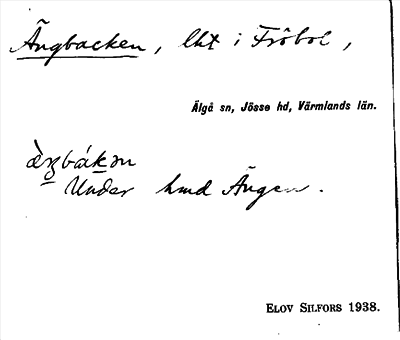 Ängbacken, lht i Fröbol,
Älgå sn, Jösse hd, Värmlands län.
Under hmd Ängen.
ELOV SILFORS 1938.